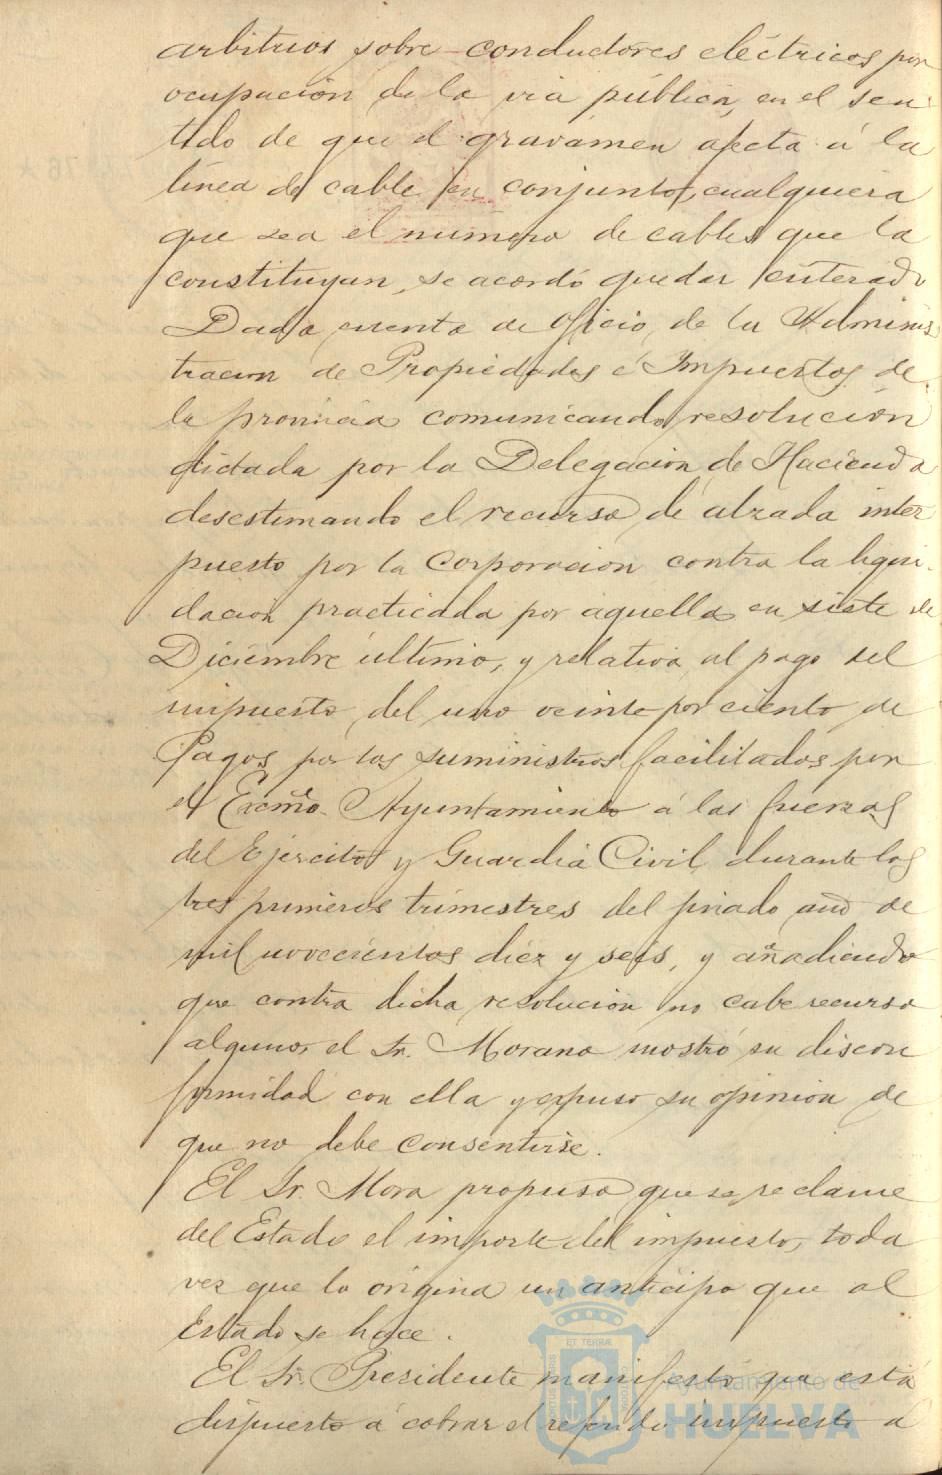 arbitrios sobre conductores eléctricos por
ocupación de la via pública, en el sen
tido de que el gravámen afecta á la
linea de cable en conjunto, cualquiera
que sea el número de cables que la
constituyan, se acordó quedar enterado
Dada cuenta de oficio de la Adminis
tracion de Propiedades é Impuestos de
la provincia comunicando resolución
dictada por la Delegación de Hacienda
desestimando el recurso de alzada inter
puesto por la Corporacion contra la liqui-
dacion practicada por aquella en siete de
Diciembre último, y relativa al pago del
impuesto del uno veinte por ciento de
Pagos por los suministros facilitados por
el Excmo. Ayuntamiento á las fuerzas
del Ejército y Guardia Civil durante los
tres primeros trimestres del pasado año de
mil novecientos diez y seis, y añadiendo
que contra dicha resolución no cabe recurso
alguno, el Sr. Morano mostró su discon
formidad con ella y expuso su opinion de
que no debe consentirse.
El Sr. Mora propuso que se reclame
del Estado el importe del impuesto, toda
vez que lo origina un anticipo que al
Estado se hace.
El Sr. Presidente manifestó que está
dispuesto á cobrar el referido impuesto al
Ayuntamiento de
HUELVA